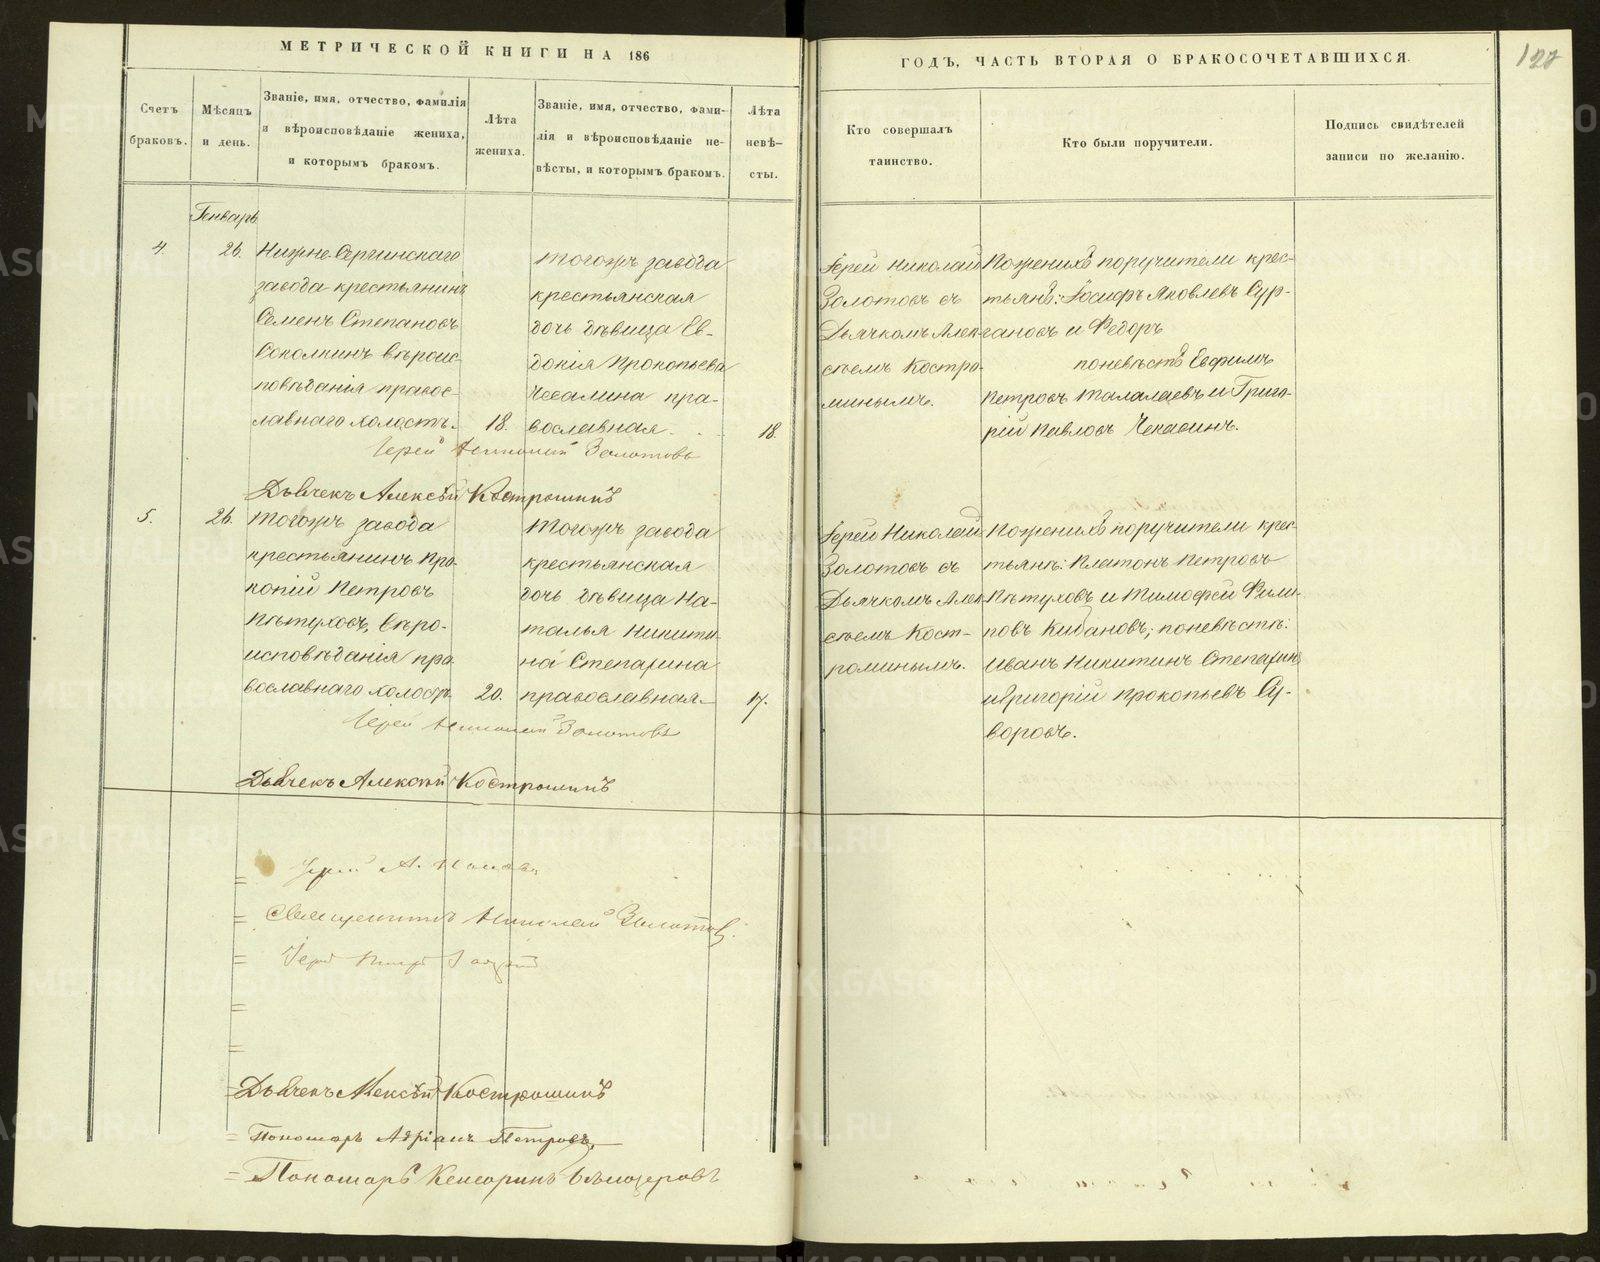 МЕТРИЧЕСКОЙ КНИГИ НА 186
ГОДЪ, ЧАСТЬ ВТОРАЯ О БРАКОСОЧЕТАВШИХСЯ.
127
Счетъ
браковъ.
Мѣсяцъ
и день.
Званіе, имя, отчество, фамилія
и вѣроисповѣданіе жениха,
и которымъ бракомъ.
Лѣта
жениха.
Званіе, имя, отчество, фами-
лія и вѣроисповѣданіе не-
вѣсты, и которымъ бракомъ.
Лѣта
невѣ-
сты.
Кто совершалъ
таинство.
Кто были поручители.
Подпись свидѣтелей
записи по желанію.
Генварь
4.
26.
Нижне-Сергинскаго
завода крестьянинъ
Семенъ Степановъ
Соколкинъ вѣроис-
повѣданія правос-
лавнаго холостъ.
18.
тогожъ завода
крестьянская
дочь дѣвица Ев-
докія Прокопьева
пра-
вославная.
18.
Іерей Николай
Золотовъ съ
Дьячкомъ Алек-
сѣемъ Костро-
минымъ.
Поженихѣ поручители крес-
тьянѣ: Іосифъ Яковлевъ Сур-
гановъ и Федоръ
поневѣстѣ Евфимъ
Петровъ Талалаевъ и Григо-
рій Павловъ Чекасинъ.
Іерей Николай Золотовъ
Дьячекъ Алексѣй Костроминъ
5.
26.
Тогожъ завода
крестьянинъ Про-
копій Петровъ
Пѣтуховъ, вѣро-
исповѣданія пра-
вославнаго холостъ
20.
Тогожъ завода
крестьянская
дочь дѣвица На-
талья Никити-
на Степарина
православная.
17.
Іерей Николай
Золотовъ съ
Дьячкомъ Алек-
сѣемъ Кост-
роминымъ.
Поженихѣ поручители крес-
тьянѣ: Платонъ Петровъ
Пѣтуховъ и Тимофей Фили-
повъ Кибановъ; поневѣстѣ:
Иванъ Никитинъ Степаринъ
и Григорій Прокопьевъ Су-
воровъ.
Іерей Николай Золотовъ
Дьячекъ Алексѣй Костроминъ
= Іерей А. Поповъ
= Священникъ Николай Золотовъ.
= Іерей
=
=
= Дьячекъ Алексѣй Костроминъ
= Пономарь Адріанъ Петровъ.
= Пономарь Кенсоринъ Бѣлозеровъ
METRIKI.GASO-URAL.RU